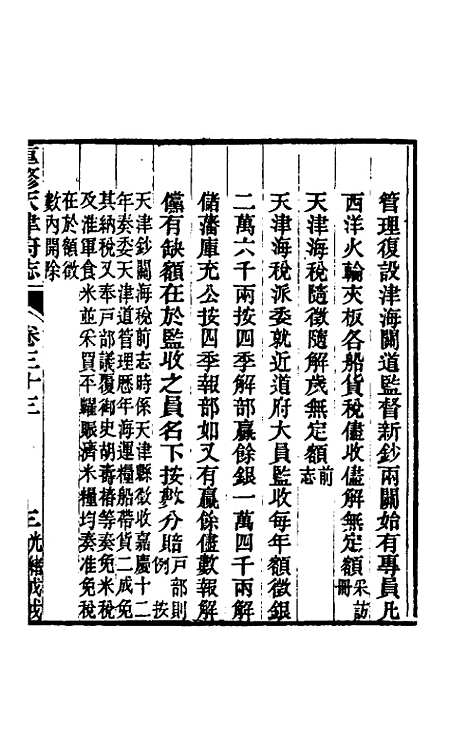 管理復設津海關道監督新鈔兩關始有專員凡
西洋火輪夾板各船貨稅儘收儘解無定額采訪冊
天津海稅隨徵隨解歲無定額前志
天津海稅派委就近道府大員監收每年額徵銀
二萬六千兩按四季解部贏餘銀一萬四千兩解
儲藩庫充公按四季報部如又有贏餘儘數報解
儻有缺額在於監收之員名下按數分賠戶部則例按
天津鈔關海稅前志時係天津縣徵收嘉慶十二
年奏委天津道管理歷年海運糧船帶貨二成免
其納稅又奉戶部議覆御史胡壽椿等奏免米稅
及淮軍食米並采買平糶賑濟米糧均奏准免稅
在於額徵
數內開除
重修天津府志
卷三十三
三
光緒戊戌